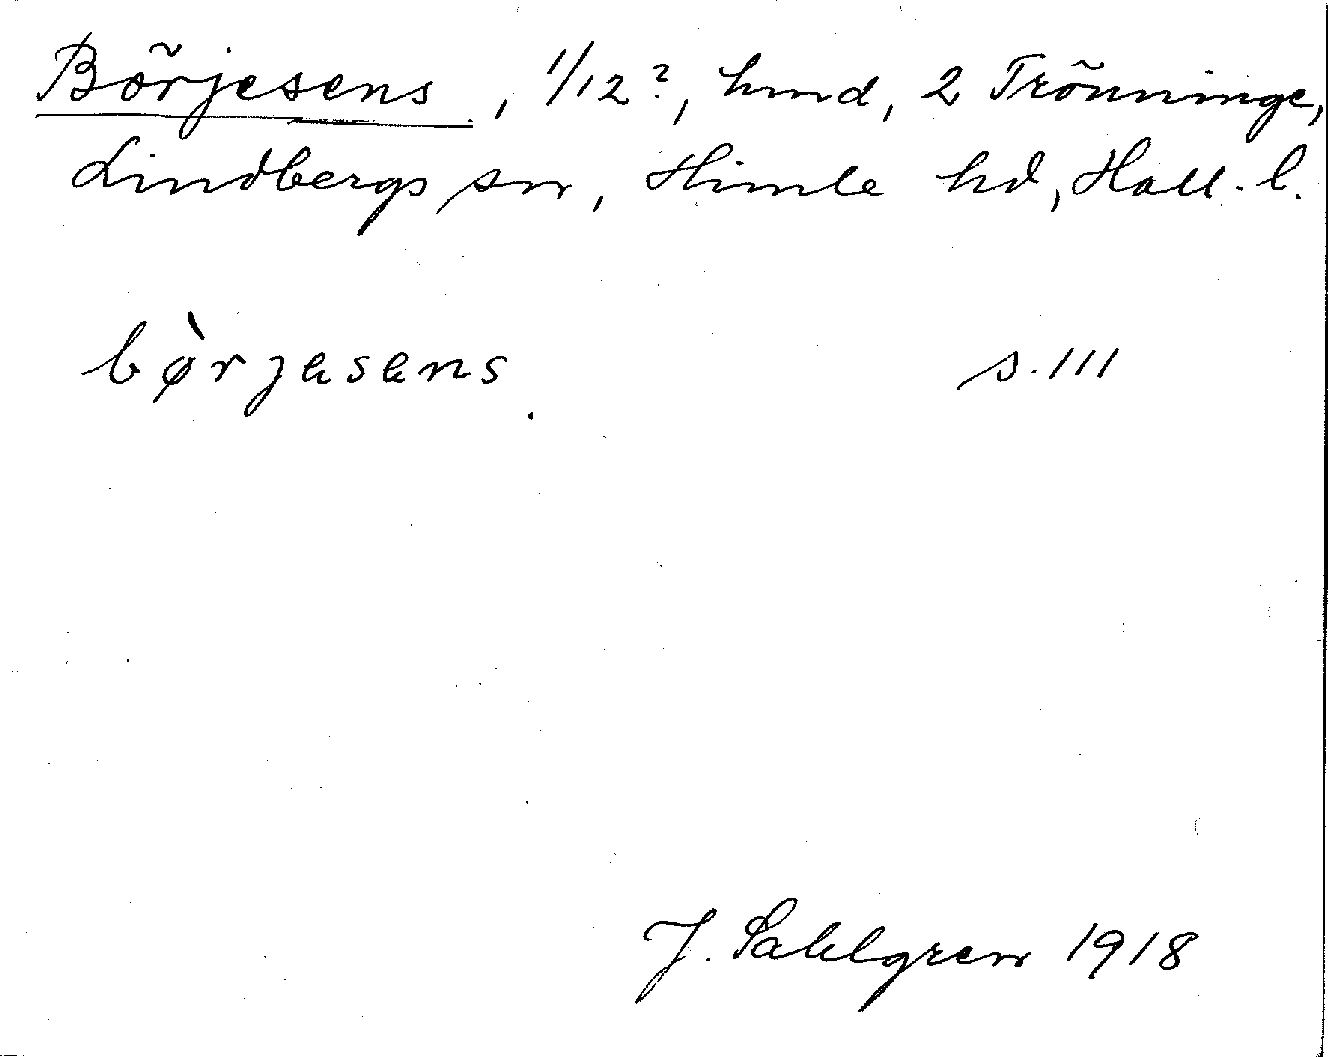 Börjesens, 1/12?, hmd, 2 Trönninge,
Lindbergs sn, Himle hd, Hall. l.
bø̀rjesens. s. 111
J. Sahlgren 1918